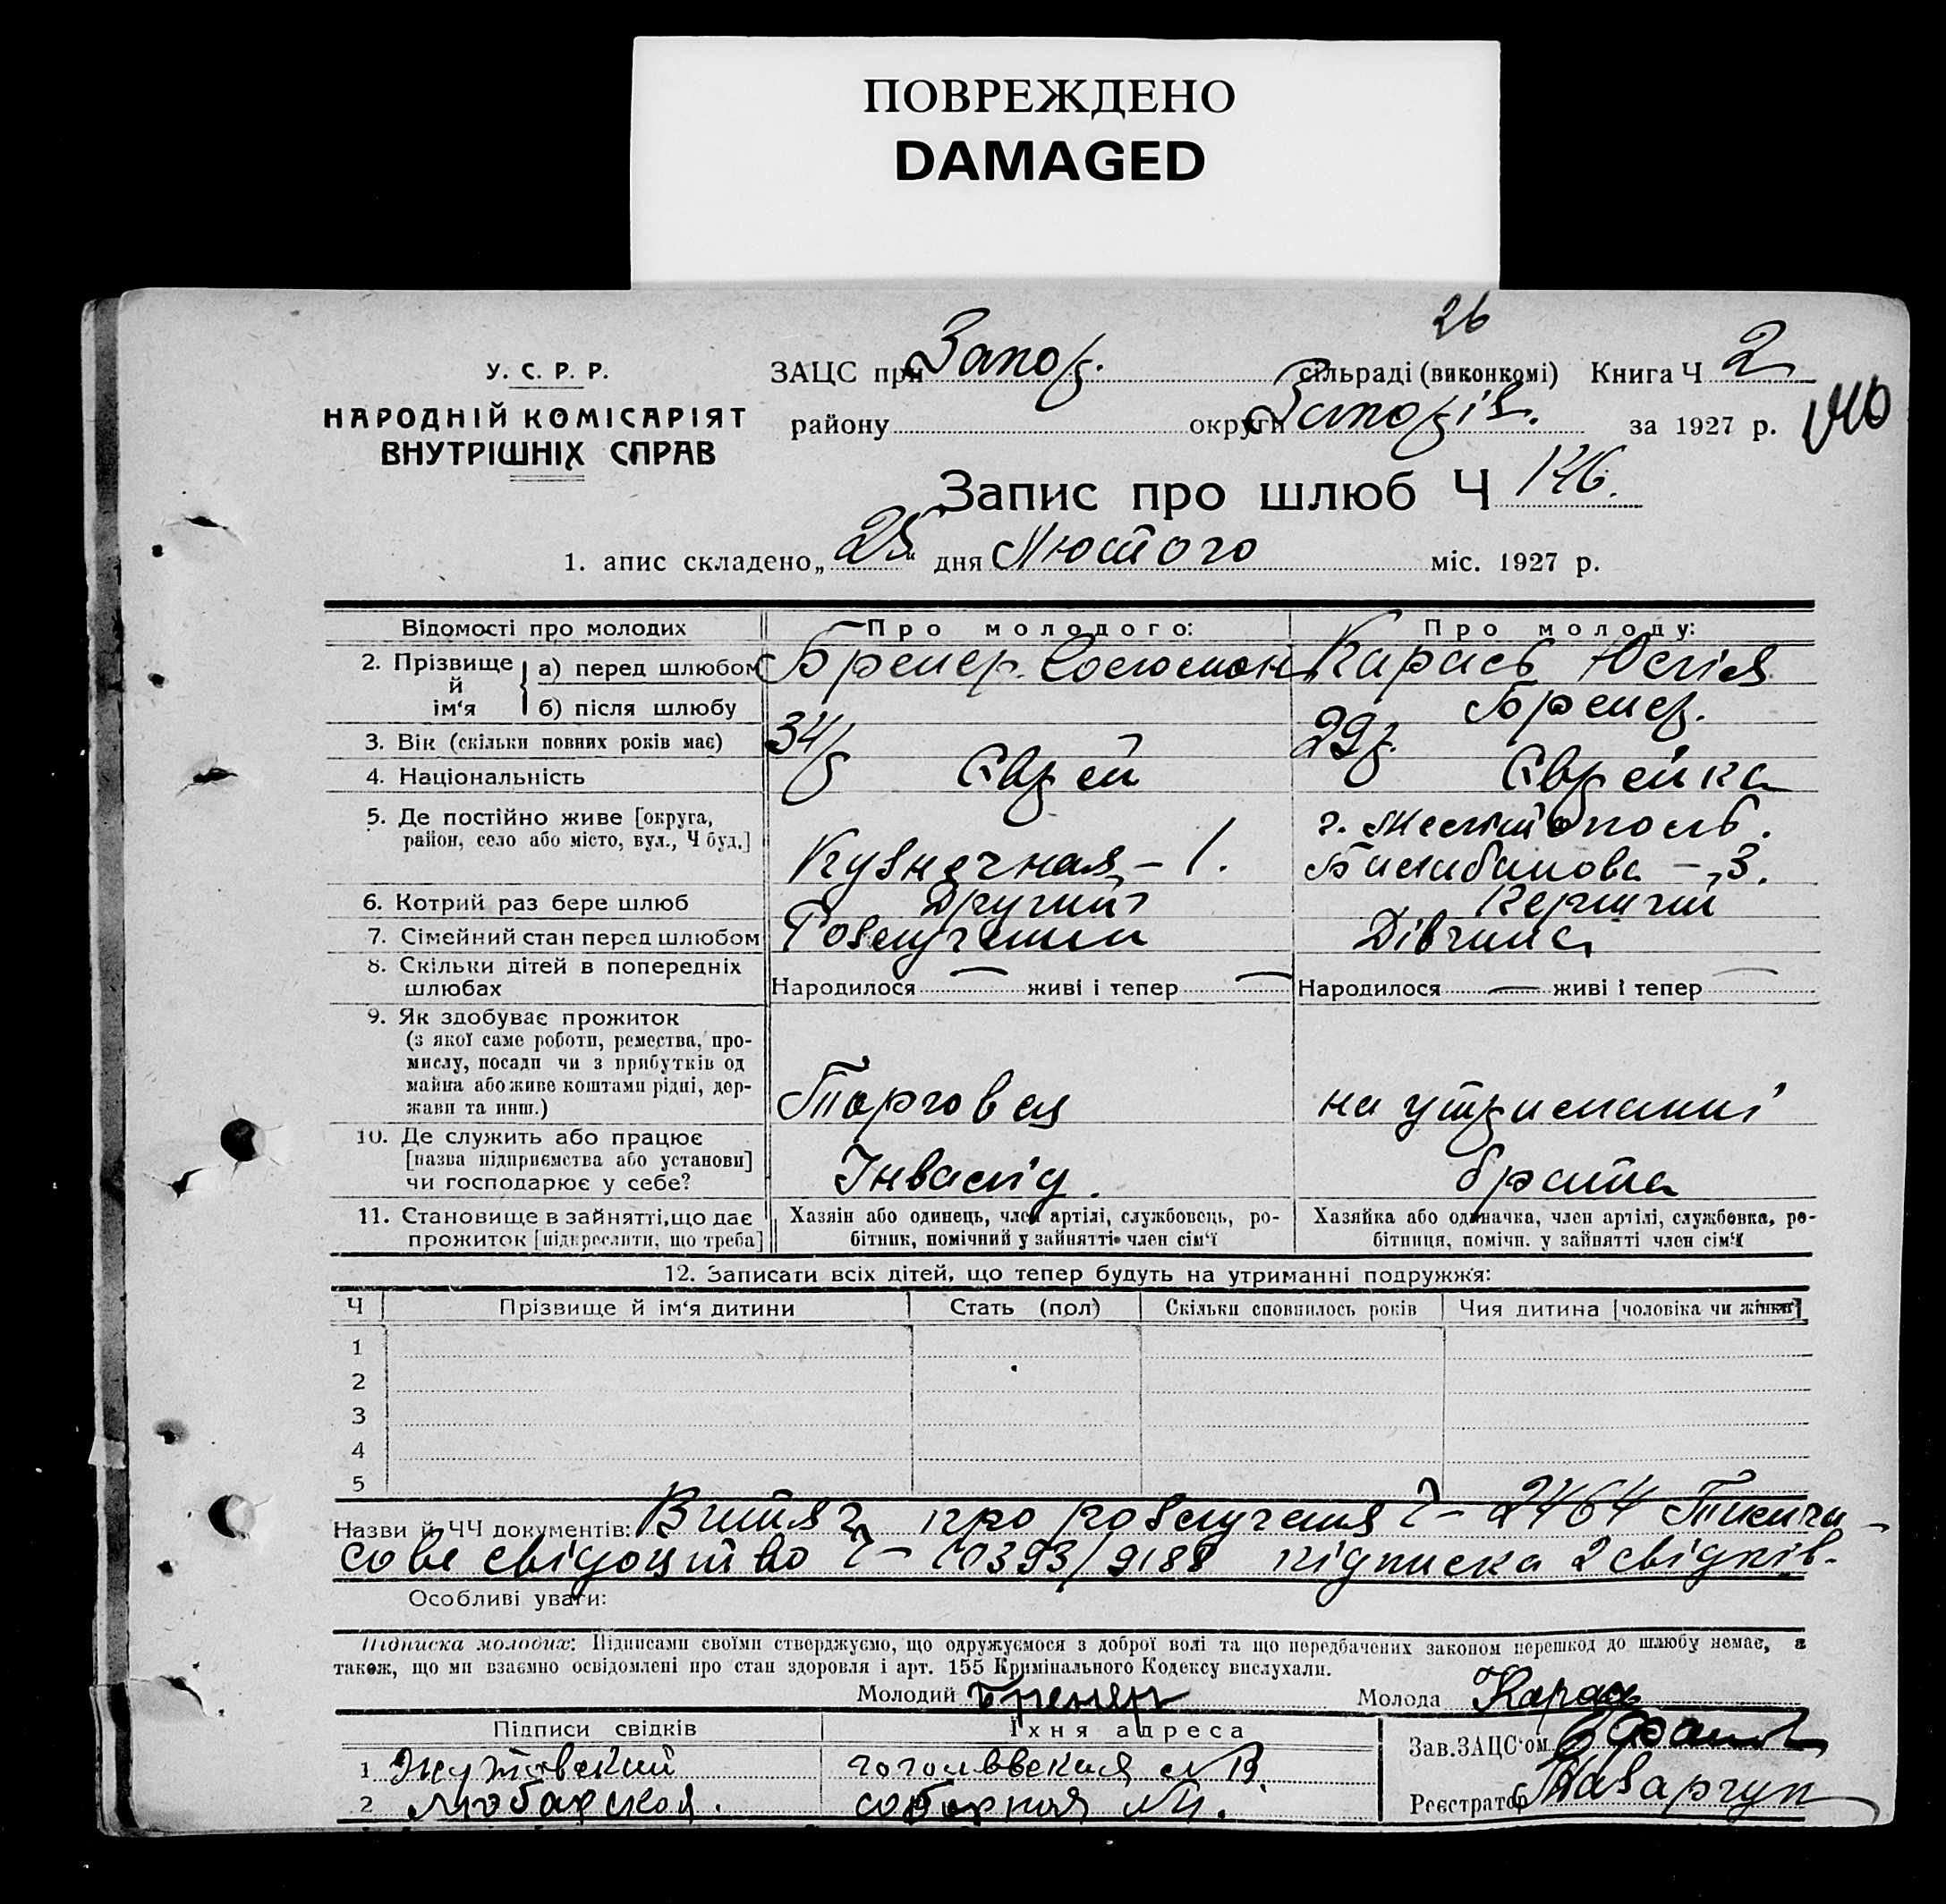 ПОВРЕЖДЕНО
DAMAGED
26
У. С. Р. Р.
НАРОДНІЙ КОМІСАРІЯТ
ВНУТРІШНІХ СПРАВ
ЗАЦС при Запор. сільраді (виконкомі) Книга Ч 2
району округи Запоріз. за 1927 р.
Запис про шлюб Ч 146.
1. апис складено „25“ дня Лютого міс. 1927 р.
Відомості про молодих Про молодого: Про молоду:
2. Прізвище й ім‘я
а) перед шлюбом Бренер Соломон Карась Юлія
б) після шлюбу Бренер.
3. Вік (скільки повних років має) 34 р 29 р.
4. Національність Єврей Єврейка
5. Де постійно живе [округа, г. Мелітополь.
район, село або місто, вул., Ч буд.] Кузнечная – 1. – 3.
6. Котрий раз бере шлюб Другий Перший
7. Сімейний стан перед шлюбом Розлучений Дівчина
8. Скільки дітей в попередніх
шлюбах Народилося — живі і тепер — Народилося — живі і тепер —
9. Як здобуває прожиток
(з якої саме роботи, ремества, про-
мислу, посади чи з прибутків од
майна або живе коштами рідні, дер-
жави та инш.) Торговая на утриманні
10. Де служить або працює
[назва підприємства або установи]
чи господарює у себе? Інвалід. брата
11. Становище в зайнятті, що дає Хазяін або одинець, член артілі, службовець, ро- Хазяйка або одиначка, член артілі, службовка, ро-
прожиток [підкреслити, що треба] бітник, помічний у зайнятті член сім‘ї бітниця, помічн. у зайнятті член сім‘ї
12. Записати всіх дітей, що тепер будуть на утриманні подружжя:
Ч Прізвище й ім‘я дитини Стать (пол) Скільки сповнилось років Чия дитина [чоловіка чи жінки]
1
2
3
4
5
Назви й ЧЧ документів: Витяг про розлучення Ч – 2464 Тимча-
сове свідоцтво Ч – 10393/9188 підписка 2 свідків.
Особливі уваги:
Підписка молодих: Підписами своїми стверджуємо, що одружуємося з доброї волі та що передбачених законом перешкод до шлюбу немає, а
також, що ми взаємно освідомлені про стан здоровля і арт. 155 Кримінального Кодексу вислухали.
Молодий Бренер Молода Карась
Підписи свідків Їхня адреса Зав. ЗАЦС‘ом
1 гоголевская
2 Любарская. соборная Реєстратор